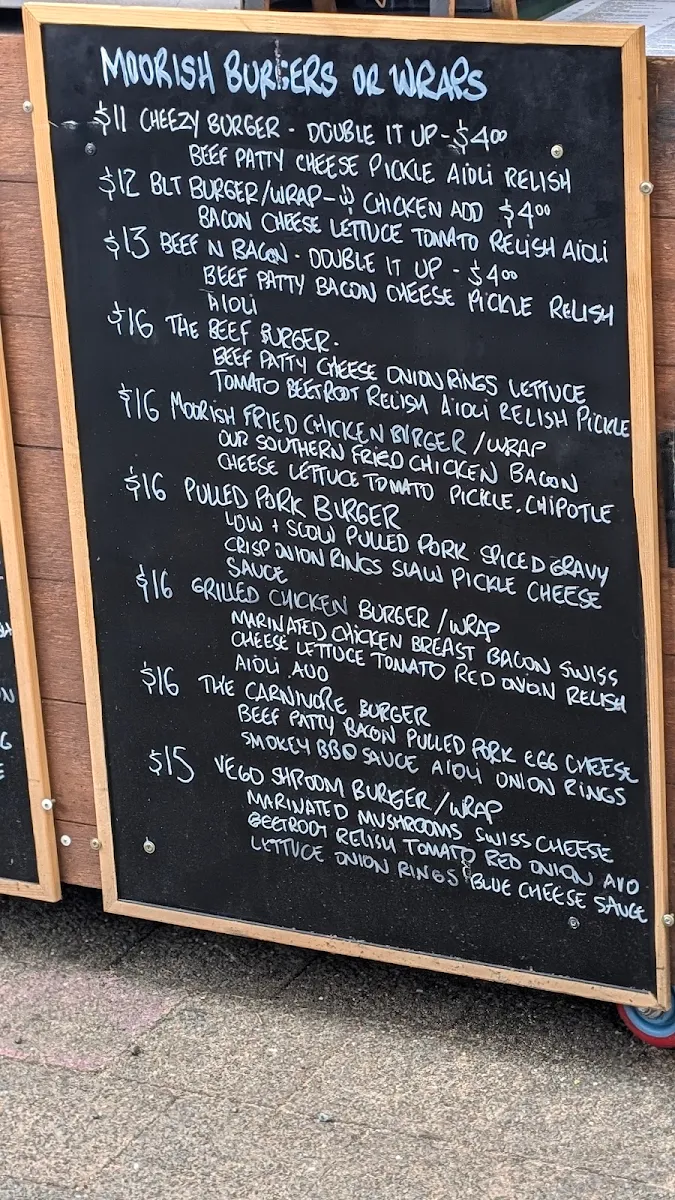 MOORISH BURGERS OR WRAPS
$11 CHEEZY BURGER - DOUBLE IT UP - $4⁰⁰
BEEF PATTY CHEESE PICKLE AIOLI RELISH
$12 BLT BURGER/WRAP - CHICKEN ADD $4⁰⁰
BACON CHEESE LETTUCE TOMATO RELISH AIOLI
$13 BEEF N BACON - DOUBLE IT UP - $4⁰⁰
BEEF PATTY BACON CHEESE PICKLE RELISH
AIOLI
$16 THE BEEF BURGER-
BEEF PATTY CHEESE ONION RINGS LETTUCE
TOMATO BEETROOT RELISH AIOLI RELISH PICKLE
$16 MOORISH FRIED CHICKEN BURGER/WRAP
OUR SOUTHERN FRIED CHICKEN BACON
CHEESE LETTUCE TOMATO PICKLE, CHIPOTLE
$16 PULLED PORK BURGER
LOW + SLOW PULLED PORK SPICED GRAVY
CRISP ONION RINGS SLAW PICKLE CHEESE
SAUCE
$16 GRILLED CHICKEN BURGER/WRAP
MARINATED CHICKEN BREAST BACON SWISS
CHEESE LETTUCE TOMATO RED ONION RELISH
AIOLI AVO
$16 THE CARNIVORE BURGER
BEEF PATTY BACON PULLED PORK EGG CHEESE
SMOKEY BBQ SAUCE AIOLI ONION RINGS
$15 VEGO SHROOM BURGER/WRAP
MARINATED MUSHROOMS SWISS CHEESE
BEETROOT RELISH TOMATO RED ONION AVO
LETTUCE ONION RINGS BLUE CHEESE SAUCE